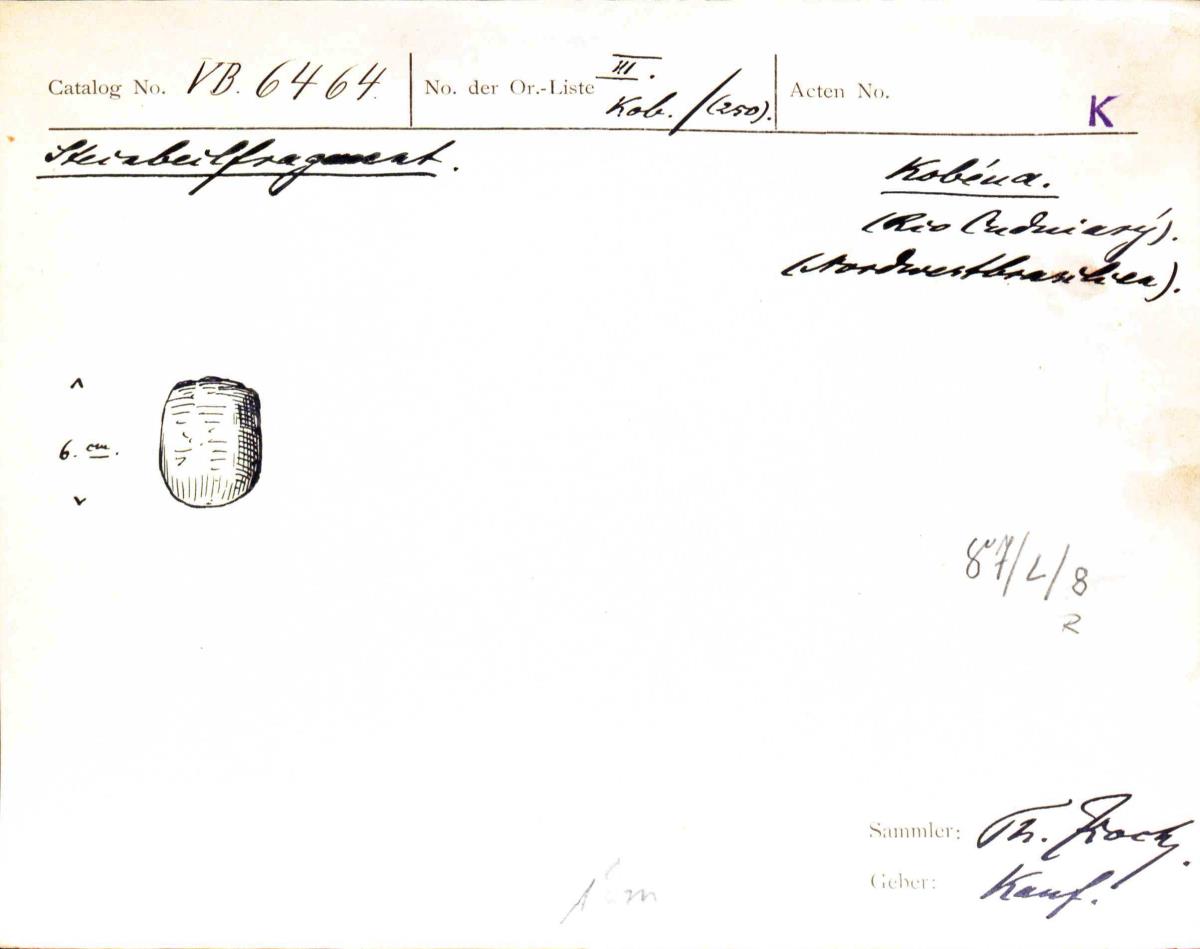 Catalog No. VB. 6464. No. der Or.-Liste III. Kob./(250). Acten No. K
Steinbeilfragment.
Kobéua.
(Rio Cuduiarý).
(Nordwestbrasilien).
6. cm.
87/L/8
R
Sammler: Th. Koch.
Geber: Kauf.